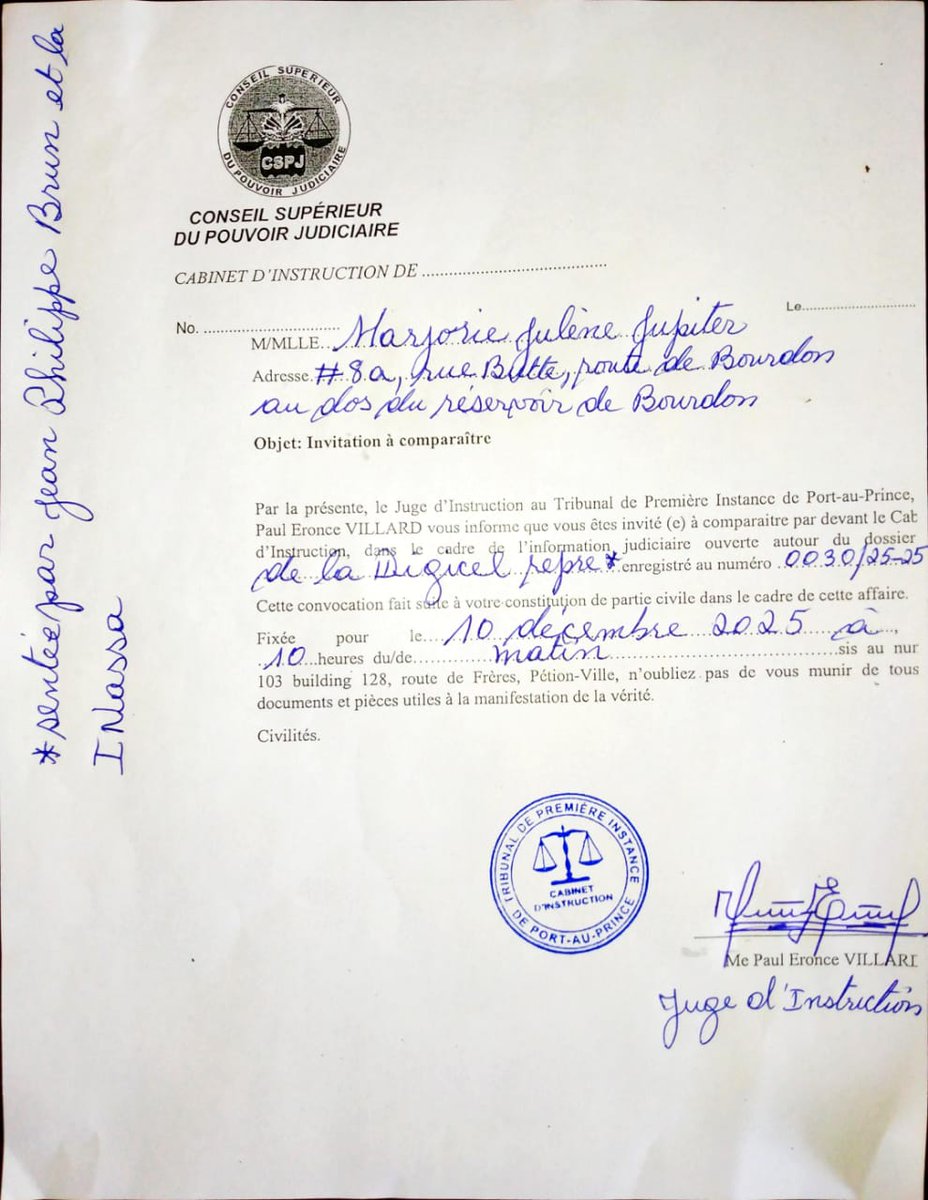 *sentée par Jean Philippe Brun et la
INassa
CONSEIL SUPERIEUR
DU POUVOIR JUDICIAIRE
CSPJ
CONSEIL SUPÉRIEUR
DU POUVOIR JUDICIAIRE
CABINET D'INSTRUCTION DE ..........................................
No. ...............................
Le............................
M/MLLE....Marjorie Julène Jupiter
Adresse.#.8a, rue Butte, route de Bourdon
au dos du réservoir de Bourdon
Objet: Invitation à comparaître
Par la présente, le Juge d'Instruction au Tribunal de Première Instance de Port-au-Prince,
Paul Eronce VILLARD vous informe que vous êtes invité (e) à comparaitre par devant le Cab
d'Instruction, dans le cadre de l'information judiciaire ouverte autour du dossier
de la Digicel repré*.enregistré au numéro .0030/25-25
Cette convocation fait suite à votre constitution de partie civile dans le cadre de cette affaire.
Fixée pour le....10 décembre 2025 à..,
.10..heures du/de............matin.......................................sis au nur
103 building 128, route de Frères, Pétion-Ville, n'oubliez pas de vous munir de tous
documents et pièces utiles à la manifestation de la vérité.
Civilités.
TRIBUNAL DE PREMIÈRE INSTANCE
CABINET
D'INSTRUCTION
DE PORT-AU-PRINCE
Me Paul Eronce VILLARD
Juge d'Instruction